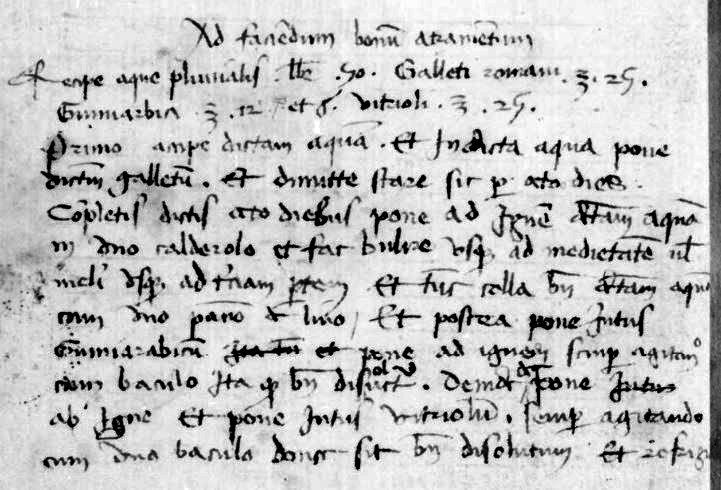 Ad faciēdum bonū atramētum
Recipe aque pluvialis . llbr . 50 . Galleti romani . ʒ . 25 .
Gumiarbica ʒ . 12 et 6. vitrioli . ʒ . 25 .
Primo accipe dictam aquā . Et In dicta aqua pone
dictm̄ galletū . Et dimitte stare sic p octo dies .
Cōpletis dictis octo diebus pone ad Ignē dtam aquā
in uno calderolo et fac bulire usq ad medietatē ul
meli usq ad tciam ptem Et tūc colla bn̄ dtam aquā
cum uno pāno d lino / Et postea pone Intus
Gumiarabicū et pone ad ignem semp agitan
cum baculo Ita q bn̄ . Deinde pone
ab Igne Et pone Intus vitriolū . semp agitando
cum uno baculo donec sit bn̄ disolutum Et refrigi